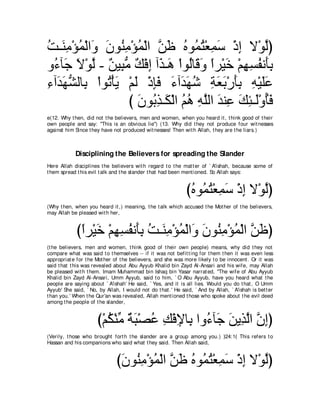 لَّوْلا إِذْ سَمِعْتُمُوهُ ظَنَّ الْمُؤْمِنُونَ وَالْمُؤْمِنَـتُ
بِأَنفُسِهِمْ خَيْراً وَقَالُواْ هَـذَا إِفْكٌ مُّبِينٌ - لَّوْلاَ جَآءُوا
عَلَيْهِ بِأَرْبَعَةِ شُهَدَآءَ فَإِذْ لَمْ يَأْتُواْ بِالشُّهَدَآءِ
فَأُوْلَـئِكَ عِندَ اللَّهِ هُمُ الْكَـذِبُونَ )
e(12. Why then, did not the believers, men and women, when you heard it, think good of their
own people and say: "This is an obvious lie'') (13. Why did they not produce four witnesses
against him Since they have not produced witnesses! Then with Allah, they are the liars.)
Disciplining the Believers for spreading the Slander
Here Allah disciplines the believers with regard to the matter of `A'ishah, because some of
them spread this evil talk and the slander that had been mentioned. So Allah says:
(لَّوْلا إِذْ سَمِعْتُمُوهُ)
(Why then, when you heard it,) meaning, the talk which accused the Mother of the believers,
may Allah be pleased with her,
(ظَنَّ الْمُؤْمِنُونَ وَالْمُؤْمِنَـتُ بِأَنفُسِهِمْ خَيْراً)
(the believers, men and women, think good of their own people) means, why did they not
compare what was said to themselves -- if it was not befitting for them then it was even less
appropriate for the Mother of the believers, and she was more likely to be innocent. Or it was
said that this was revealed about Abu Ayyub Khalid bin Zayd Al-Ansari and his wife, may Allah
be pleased with them. Imam Muhammad bin Ishaq bin Yasar narrated, "The wife of Abu Ayyub
Khalid bin Zayd Al-Ansari, Umm Ayyub, said to him, `O Abu Ayyub, have you heard what the
people are saying about `A'ishah' He said, `Yes, and it is all lies. Would you do that, O Umm
Ayyub' She said, `No, by Allah, I would not do that.' He said, `And by Allah, `A'ishah is better
than you.''' When the Qur'an was revealed, Allah mentioned those who spoke about the evil deed
among the people of the slander,
(إِنَّ الَّذِينَ جَآءُوا بِالإِفْكِ عُصْبَةٌ مِّنْكُمْ)
(Verily, those who brought forth the slander are a group among you.) [24:11] This refers to
Hassan and his companions who said what they said. Then Allah said,
(لَّوْلا إِذْ سَمِعْتُمُوهُ ظَنَّ الْمُؤْمِنُونَ)